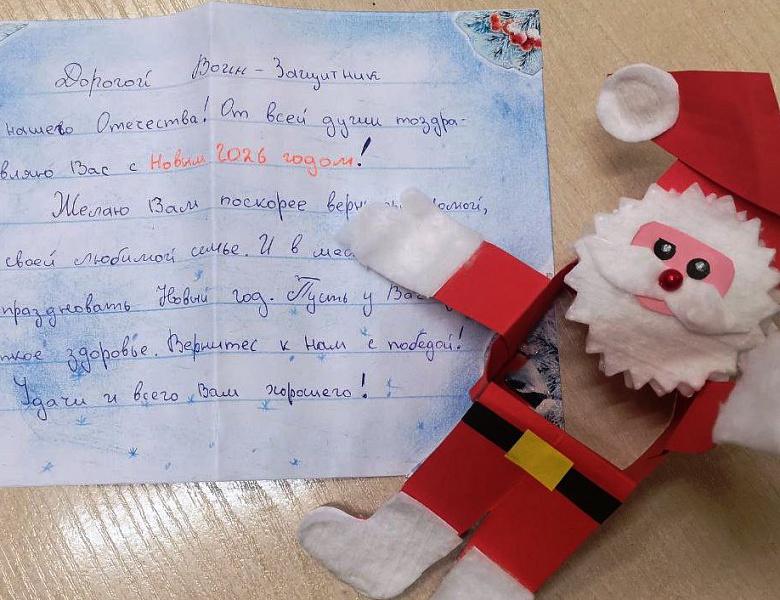 Дорогой Воин - Защитник
нашего Отечества! От всей души поздра-
вляю Вас с Новым 2026 годом!
Желаю Вам поскорее домой,
своей любимой семье. И в
праздновать Новый год. Пусть у Вас
здоровье. Вернитес к нам с победой!
Удачи и всего Вам хорошего!